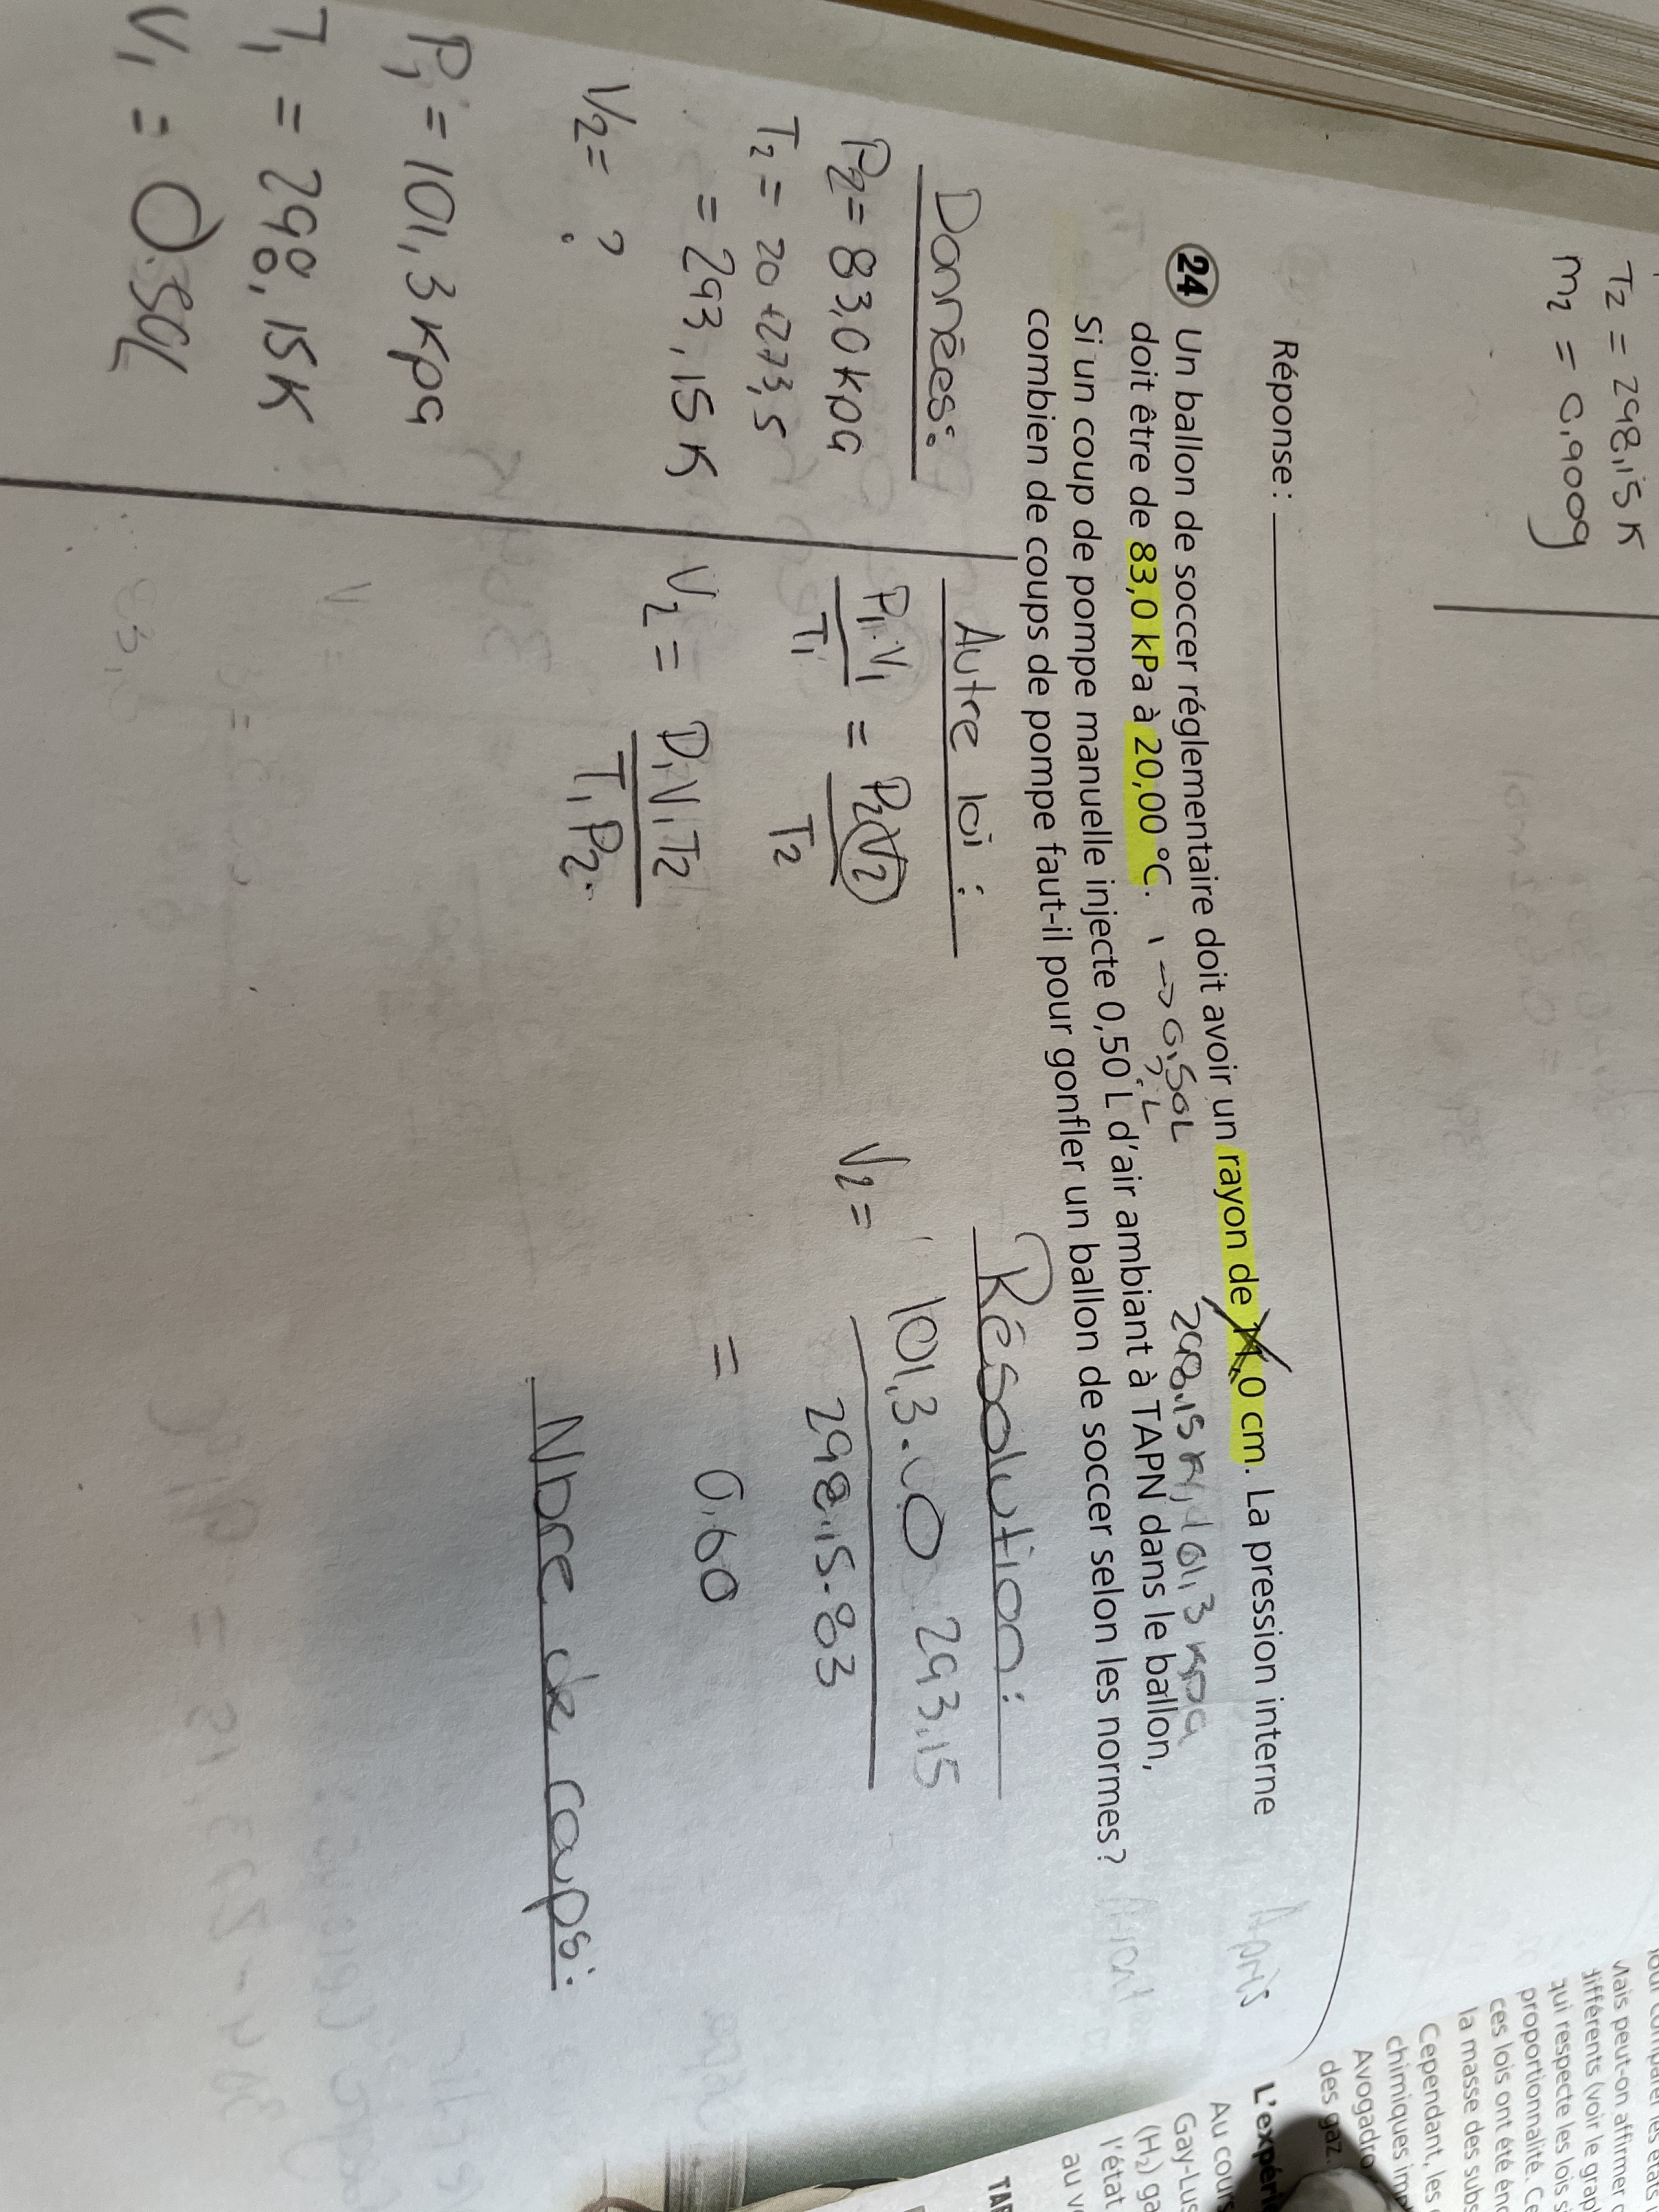 T₂ = 298,15 K
m₂ = 0,900g
Réponse :
24 Un ballon de soccer réglementaire doit avoir un rayon de 11,0 cm. La pression interne
doit être de 83,0 kPa à 20,00 °C. 1 → 0,50L 298,15 K, 101,3 kpa
Si un coup de pompe manuelle injecte 0,50 L d'air ambiant à TAPN dans le ballon,
combien de coups de pompe faut-il pour gonfler un ballon de soccer selon les normes ?
Après
Données:
P₂ = 83,0 kpa
T₂ = 20 + 273,5
= 293,15 K
V₂ = ?
P₁ = 101,3 kpa
T₁ = 298,15 K
V₁ =
Autre loi :
P₁·V₁ / T₁ = P₂V₂ / T₂
V₂ = P₁V₁T₂ / T₁P₂
Résolution :
V₂ = 101,3· 293,15
298,15·83
= 0,60
Nbre de coups:
différents (voir le grap
qui respecte les lois s
proportionnalité. Ce
ces lois ont été énc
la masse des subs
Cependant, les
chimiques imp
Avogadro
des gaz.
L'expéri
Au cours
Gay-Lus
(H₂) ga
l'état
au v
TAB